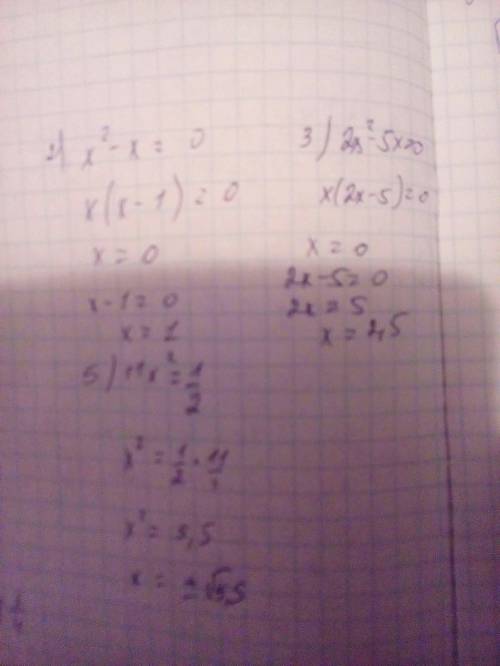 2) x² - x = 0
x(x - 1) = 0
x = 0
x - 1 = 0
x = 1
3) 2x² - 5x = 0
x(2x - 5) = 0
x = 0
2x - 5 = 0
2x = 5
x = 2,5
5) 11x² = 1/2
x² = 1/2 · 11/1
x² = 5,5
x = ±√5,5